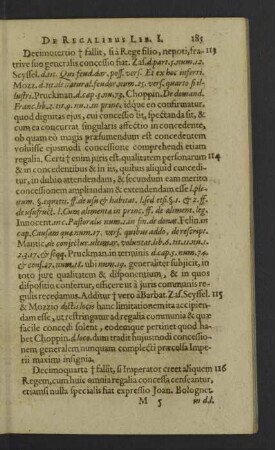 DE REGALIBUS LIB. I. 185
Decimotertio † fallit, si à Rege filio, nepoti, fra- 113
trive suo generalis concessio fiat. Zas. d. part. 5. num. 12.
Seyssel. d. tit. Quo feud. dar. poss. vers. Et ex hac inferri.
Mozz. d. tit. de natural. feudor. num. 25. vers. quarto si il-
lustris. Pruckman. d. cap. 4. num. 79. Choppin. De deman.
Franc. lib. 2. tit. 4. num. 2. in prine, idque eo confirmatur,
quod dignitas ejus, cui concessio fit, spectanda sit, &
cum ea concurrat singularis affectio in concedente,
ob quam eo magis præsumendum est concedentem
voluisse ejusmodi concessione comprehendi etiam
regalia. Certi † enim juris est, qualitatem personarum 114
& in concedentibus & in iis, quibus aliquid concedi-
tur, in dubio attendendam, & secundum eam merito
concessionem ampliandam & extendendam esse
num. §. equitii. ff. de usu & habitat.
de usufruct. l. Cum alimenta in princ. ff. de aliment. leg.
Innocent. in c. Pastoralis num. 2. in fin. de donat. Felin. in
cap. Causam quæ num. 17. vers. quibus adde, de rescript.
Mantic. de conjectur. ultimar. voluntat. lib. 6. tit. 12. num. 1.
2. 4. 17. & seqq. Pruckman. in terminis d. cap. 5. num. 74.
& cons. 27. num. 18. ubi num. 19. generaliter subjicit, in
toto jure qualitatem & disponentium, & in quos
dispositio confertur, efficere ut à juris communis in
regulis recedamus. Additur † vero à Barbat. Zas. Seyssel. 115
& Mozzio dictis locis hanc limitationem ita accipien-
dam esse, ut restringatur ad regalia communia & quæ
facile concedi solent, eodemque pertinet quod ha-
bet Choppin. d. loco. dum tradit hujusmodi concessio-
nem generalem nunquam complecti præcelsa Impe-
rii maximi insignia.
Decimoquarta † fallit, si Imperator creet aliquem 116
Regem, cum huic omnia regalia concessa censeantur,
etiamsi nulla specialis fiat expressio Joan. Bolognet.
M 5 in d. l.